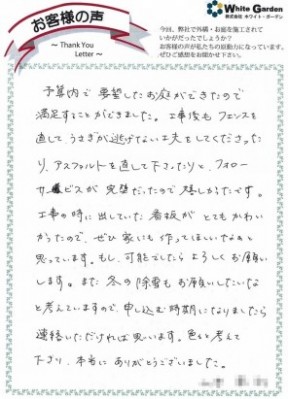 お客様の声
～ Thank You
Letter ～
White Garden
株式会社 ホワイト・ガーデン
今回、弊社で外構・お庭を施工されて
いかがだったでしょうか？
お客様の声が私たちの原動力になっています。
ぜひご感想をお聞かせ下さい。
予算内で要望したお庭ができたので
満足することができました。工事後もフェンスを
直して、うさぎが逃げない工夫をしてくださった
り、アスファルトを直して下さったりと、フォロー
サービスが完璧だったので嬉しかったです。
工事の時に出していた看板がとてもかわい
かったので、ぜひ家にも作ってほしいなぁと
思っています。もし、可能でしたらよろしくお願い
します。また冬の除雪もお願いしたいな
と考えていますので、申し込む時期になりましたら
連絡いただければ思います。色々と考えて
下さり、本当にありがとうございました。